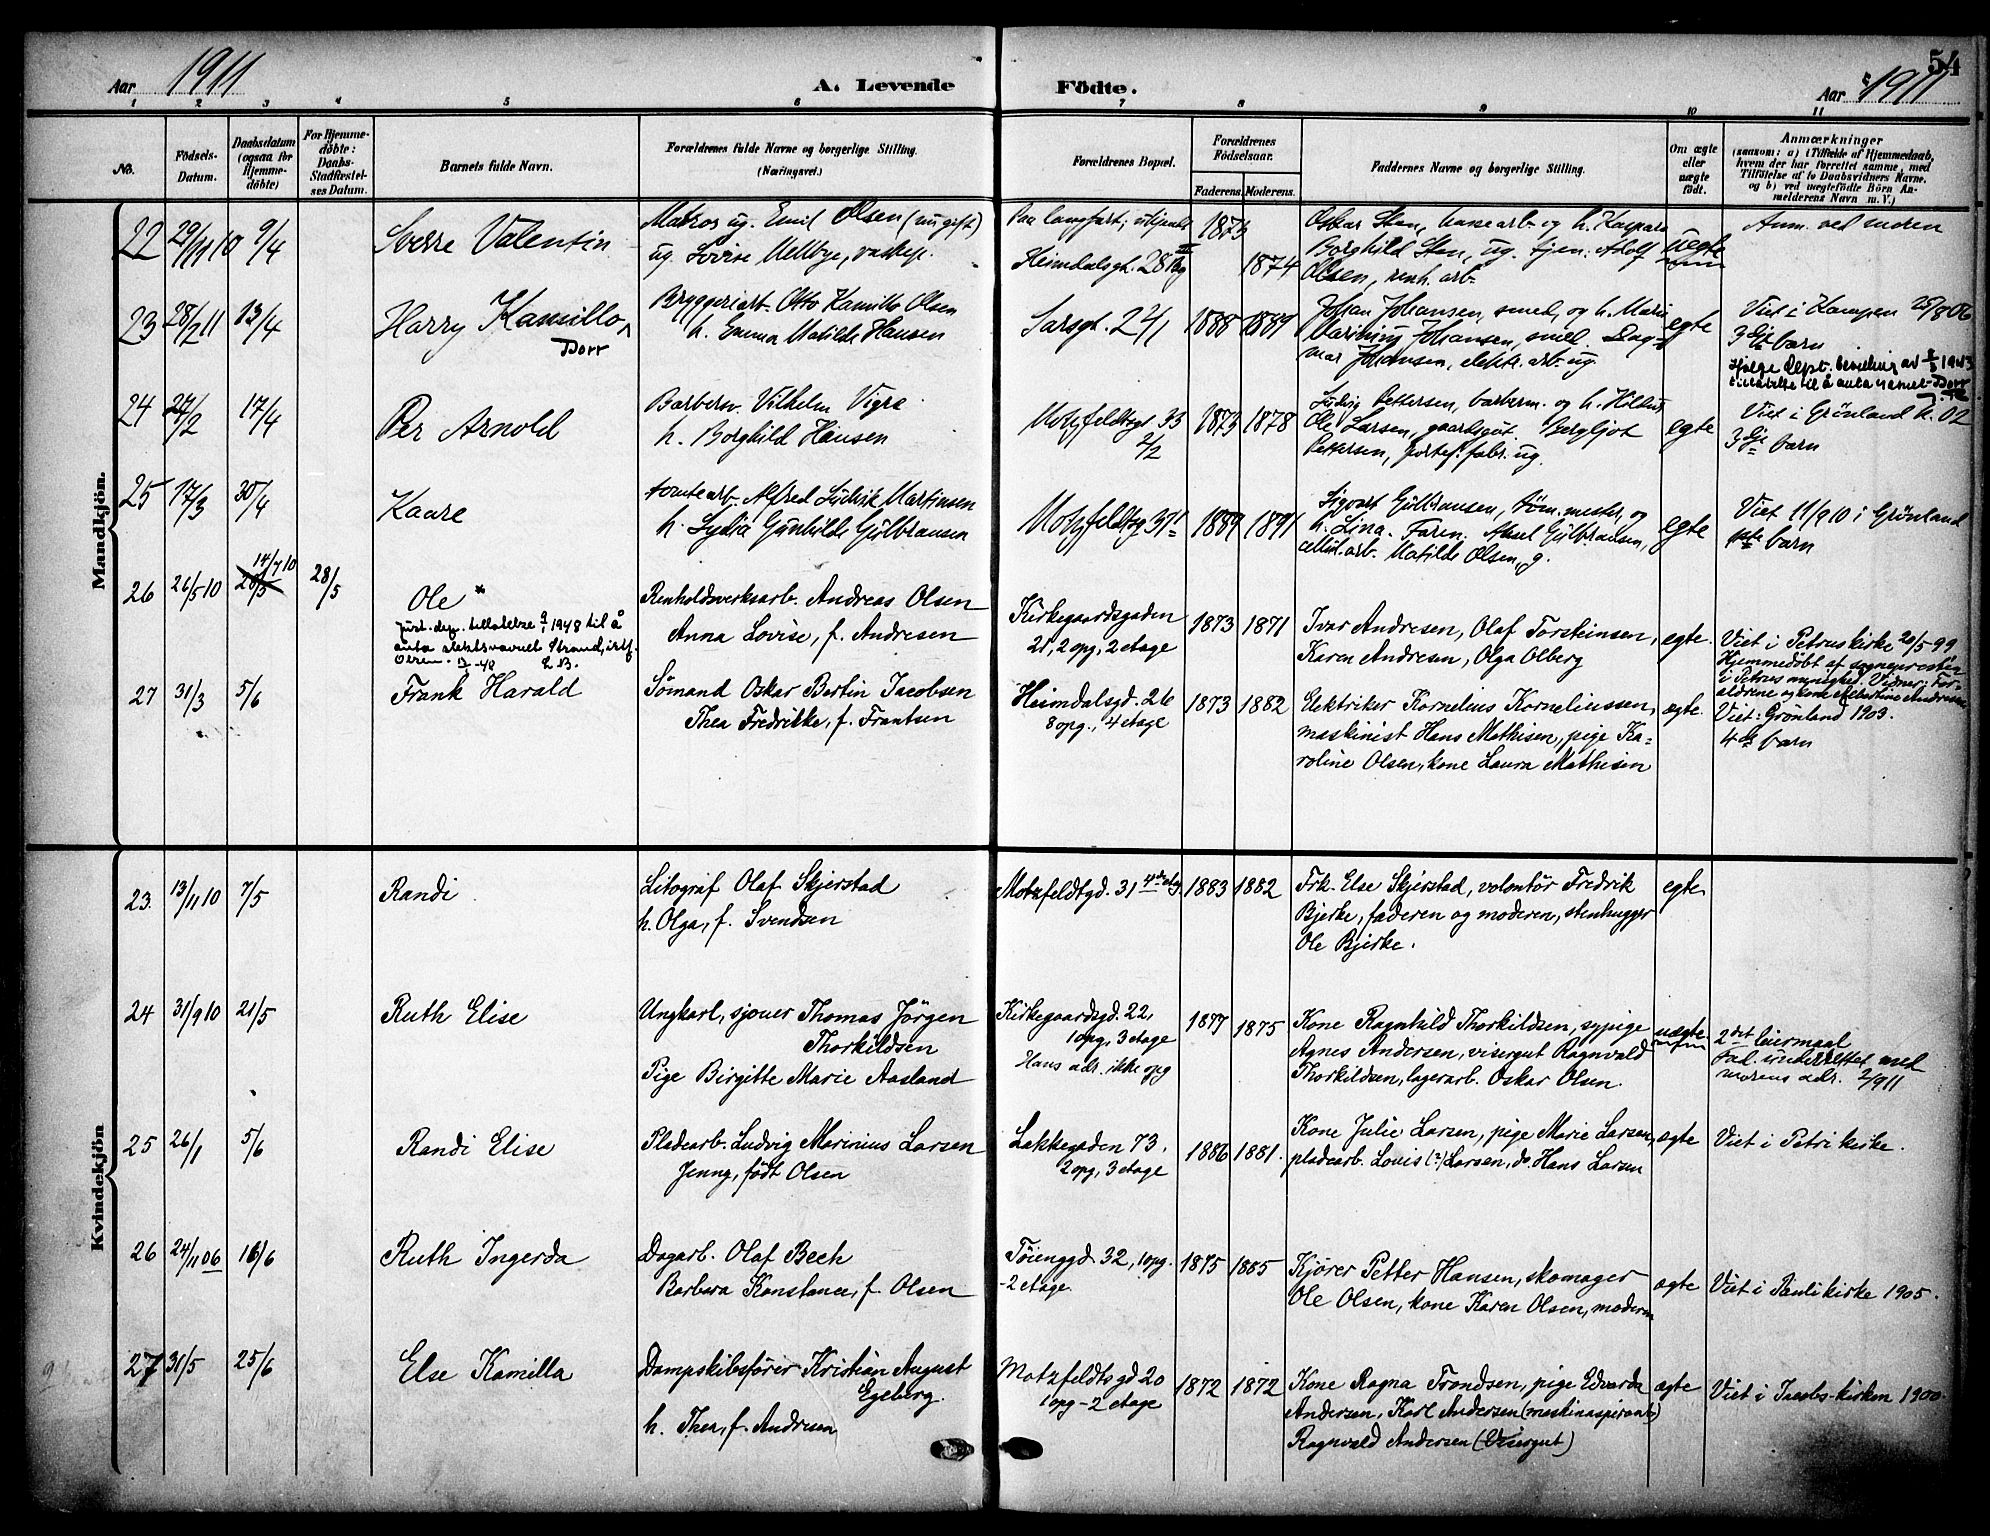 54
Aar 1911
A. Levende Fødte.
Aar 1911
1 2 3 4 5 6 7 8 9 10 11
No.
Fødsels-
Datum.
Daabsdatum
(ogsaa for
Hjemme-
døbte)
For Hjemme-
døbte:
Daabs-
Stadfæstel-
ses Datum.
Barnets fulde Navn.
Forældrenes fulde Navne og borgerlige Stilling.
(Næringsvei.)
Forældrenes Bopæl.
Forældrenes
Fødselsaar.
Faderens. Moderens.
Faddernes Navne og borgerlige Stilling.
Om ægte
eller
uægte
født.
Anmærkninger
(saasom: a) i Tilfælde af Hjemmedaab,
hvem der har forrettet samme, med
Tilføielse af to Daabsvidners Navne.
og b) ved uægtefødte Børn An-
melderens Navn m. V.)
Mandkjön.
22 29/11 10 9/4
Sverre Valentin
Matros ug. Emil Olsen (nu gift)
ug. Lovise Mellbye, vaskep.
Paa langfart;
Heimdalsgt. 28
1873
1874
Oskar Sten, murearb. og h. Kaspara
Borghild Sten, ug. tjen. Adolf
Olsen, renh. arb.
uegte
Anm. ved moren
23 28/2 11 13/4
Harry Kamillo
Dorr
Bryggeriarb. Otto Kamillo Olsen
h. Emma Matilde Hansen
Sarsgt. 24/1
1888 1889
Johan Johansen, smed, og h. Marie
Marinius Johansen, smed. Dag-
mar Johansen, elektr. arb. ug.
egte
Viet i Kampen 25/8 06
3dje barn
Ifølge Dept. bevilling av 1943
tillatelse til å anta navnet Dorr
24 27/2 17/4
Per Arnold
Barberm. Vilhelm Vigre
h. Borghild Hansen
Motzfeldtsgt 33
2/2
1873 1878
Ludvig Pettersen, barberm. og h. Hildur
Ole Larsen, gaardsgut. Bergljot
Pettersen, portef. fabr. ug.
egte
Viet i Grønland K. 02
3dje barn
25 17/3 30/4
Kaare
tomtearb. Alfred Ludvik Martinsen
h. Lydia Gunhilde Gulbransen
Motzfeldtsg 37
1889 1891
Sigvart Gulbransen, tøm. mester, og
h. Lina. Faren. Aksel Gulbransen,
cellul. arb. Matilde Olsen, g.
egte
Viet 11/9 10 i Grønland
1ste barn
26 26/5 10 14/7 10 28/5 28/5
Ole *
Just. dep. tillatelse 1948 til å
anta slektsnavnet Strand, istf.
Olsen.
Renholdsverksarb. Andreas Olsen
Anna Lovise, f. Andresen
Kirkegaardsgaden
21, 2 opg, 2 etage
1873 1871
Ivar Andresen, Olaf Torsteinsen,
Karen Andresen, Olga Olberg
egte.
Viet i Petruskirke 20/5-99
Hjemmedøbt af sognepresten
i Petrus menighed. Vidner: For-
ældrene og kone Albertine Andresen
27 31/3 5/6
Frank Harald
Sømand Oskar Bertin Jacobsen
Thea Fredrikke, f. Frantsen
Heimdalsgd. 26
8 opg., 4 etage
1873 1882
Elektriker Kornelius Korneliussen,
maskinist Hans Mathisen, pige Ka-
roline Olsen, kone Laura Mathisen
ægte.
Viet: Grønland 1903.
4de barn
Kvindekjön
23. 13/11 10 7/5
Randi
Litograf Olaf Skjerstad
h. Olga, f. Svendsen
Motzfeldtgd. 31 4de etg
1883 1882
Frk. Else Skjerstad, volontør Fredrik
Bjerke, faderen og moderen, stenhugger
Ole Bjerke.
egte
24 31/9 10 21/5
Ruth Elise
Ungkarl, sjouer Thomas Jørgen
Thorkildsen
Pige Birgitte Marie Aasland
Kirkegaardsgd. 22,
1 opg, 3 etage
Hans adr. ikke opg
1877 1875
Kone Ragnhild Thorkildsen, sypige
Agnes Andersen, visergut Ragnvald
Thorkildsen, lagerarb. Oskar Olsen
uægte
2det leiermaal
fad. underrettet med
morens adr. 2/9 11
25 26/1 5/6
Randi Elise
Pladearb. Ludvig Marinius Larsen
Jenny, født Olsen
Lakkegaden 73.
2 opg, 3 etage
1886 1881.
Kone Julie Larsen, pige Marie Larsen,
pladearb. Louis (?) Larsen, do. Hans Larsen
ægte
Viet i Petri kirke.
26 24/11 06 16/6
Ruth Ingerda
Dagarb. Olaf Bech
Barbara Konstance, f. Olsen
Tøienggd. 32, 1 opg.
-2 etage
1875 1885
Kjører Petter Hansen, skomager
Ole Olsen, kone Karen Olsen, moderen
ægte
Viet i Pauli kirke 1905.
27 31/5 25/6
Else Kamilla
Dampskibsfører Kristian August
Egeberg.
h. Thea, f. Andresen
Motzfeldtsgd 20
1 opg - 2 etage
1872 1872
Kone Ragna Trondsen, pige Edvarda
Andersen, Karl Andersen (maskinaspirant)
Ragnvald Andersen (Visergut)
ægte
Viet i Jacobs-kirken 1900.